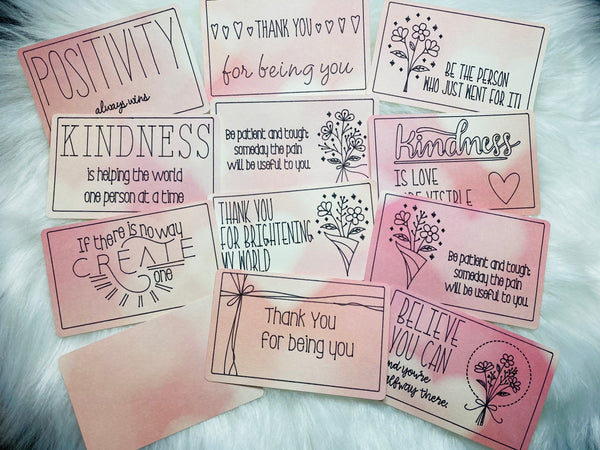 POSITIVITY
always wins
THANK YOU
for being you
BE THE PERSON
WHO JUST WENT FOR IT!
KINDNESS
is helping the world
one person at a time
Be patient and tough;
someday the pain
will be useful to you.
Kindness
IS LOVE
VISIBLE
If there is no way
CREATE
one
THANK YOU
FOR BRIGHTENING
MY WORLD
Be patient and tough;
someday the pain
will be useful to you.
Thank You
for being you
BELIEVE
YOU CAN
and you're
halfway there.